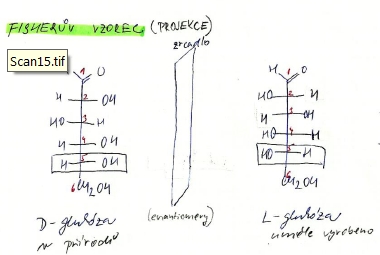 FISHERŮV VZOREC (PROJEKCE)
zrcadlo
Scan15.tif
1 O
H 2 OH
HO 3 H
H 4 OH
H 5 OH
6 CH2OH
D-glukóza
v přírodě
(enantiomery)
H 1 O
HO 2 H
H 3 OH
HO 4 H
HO 5 H
6 CH2OH
L-glukóza
uměle vyrobeno